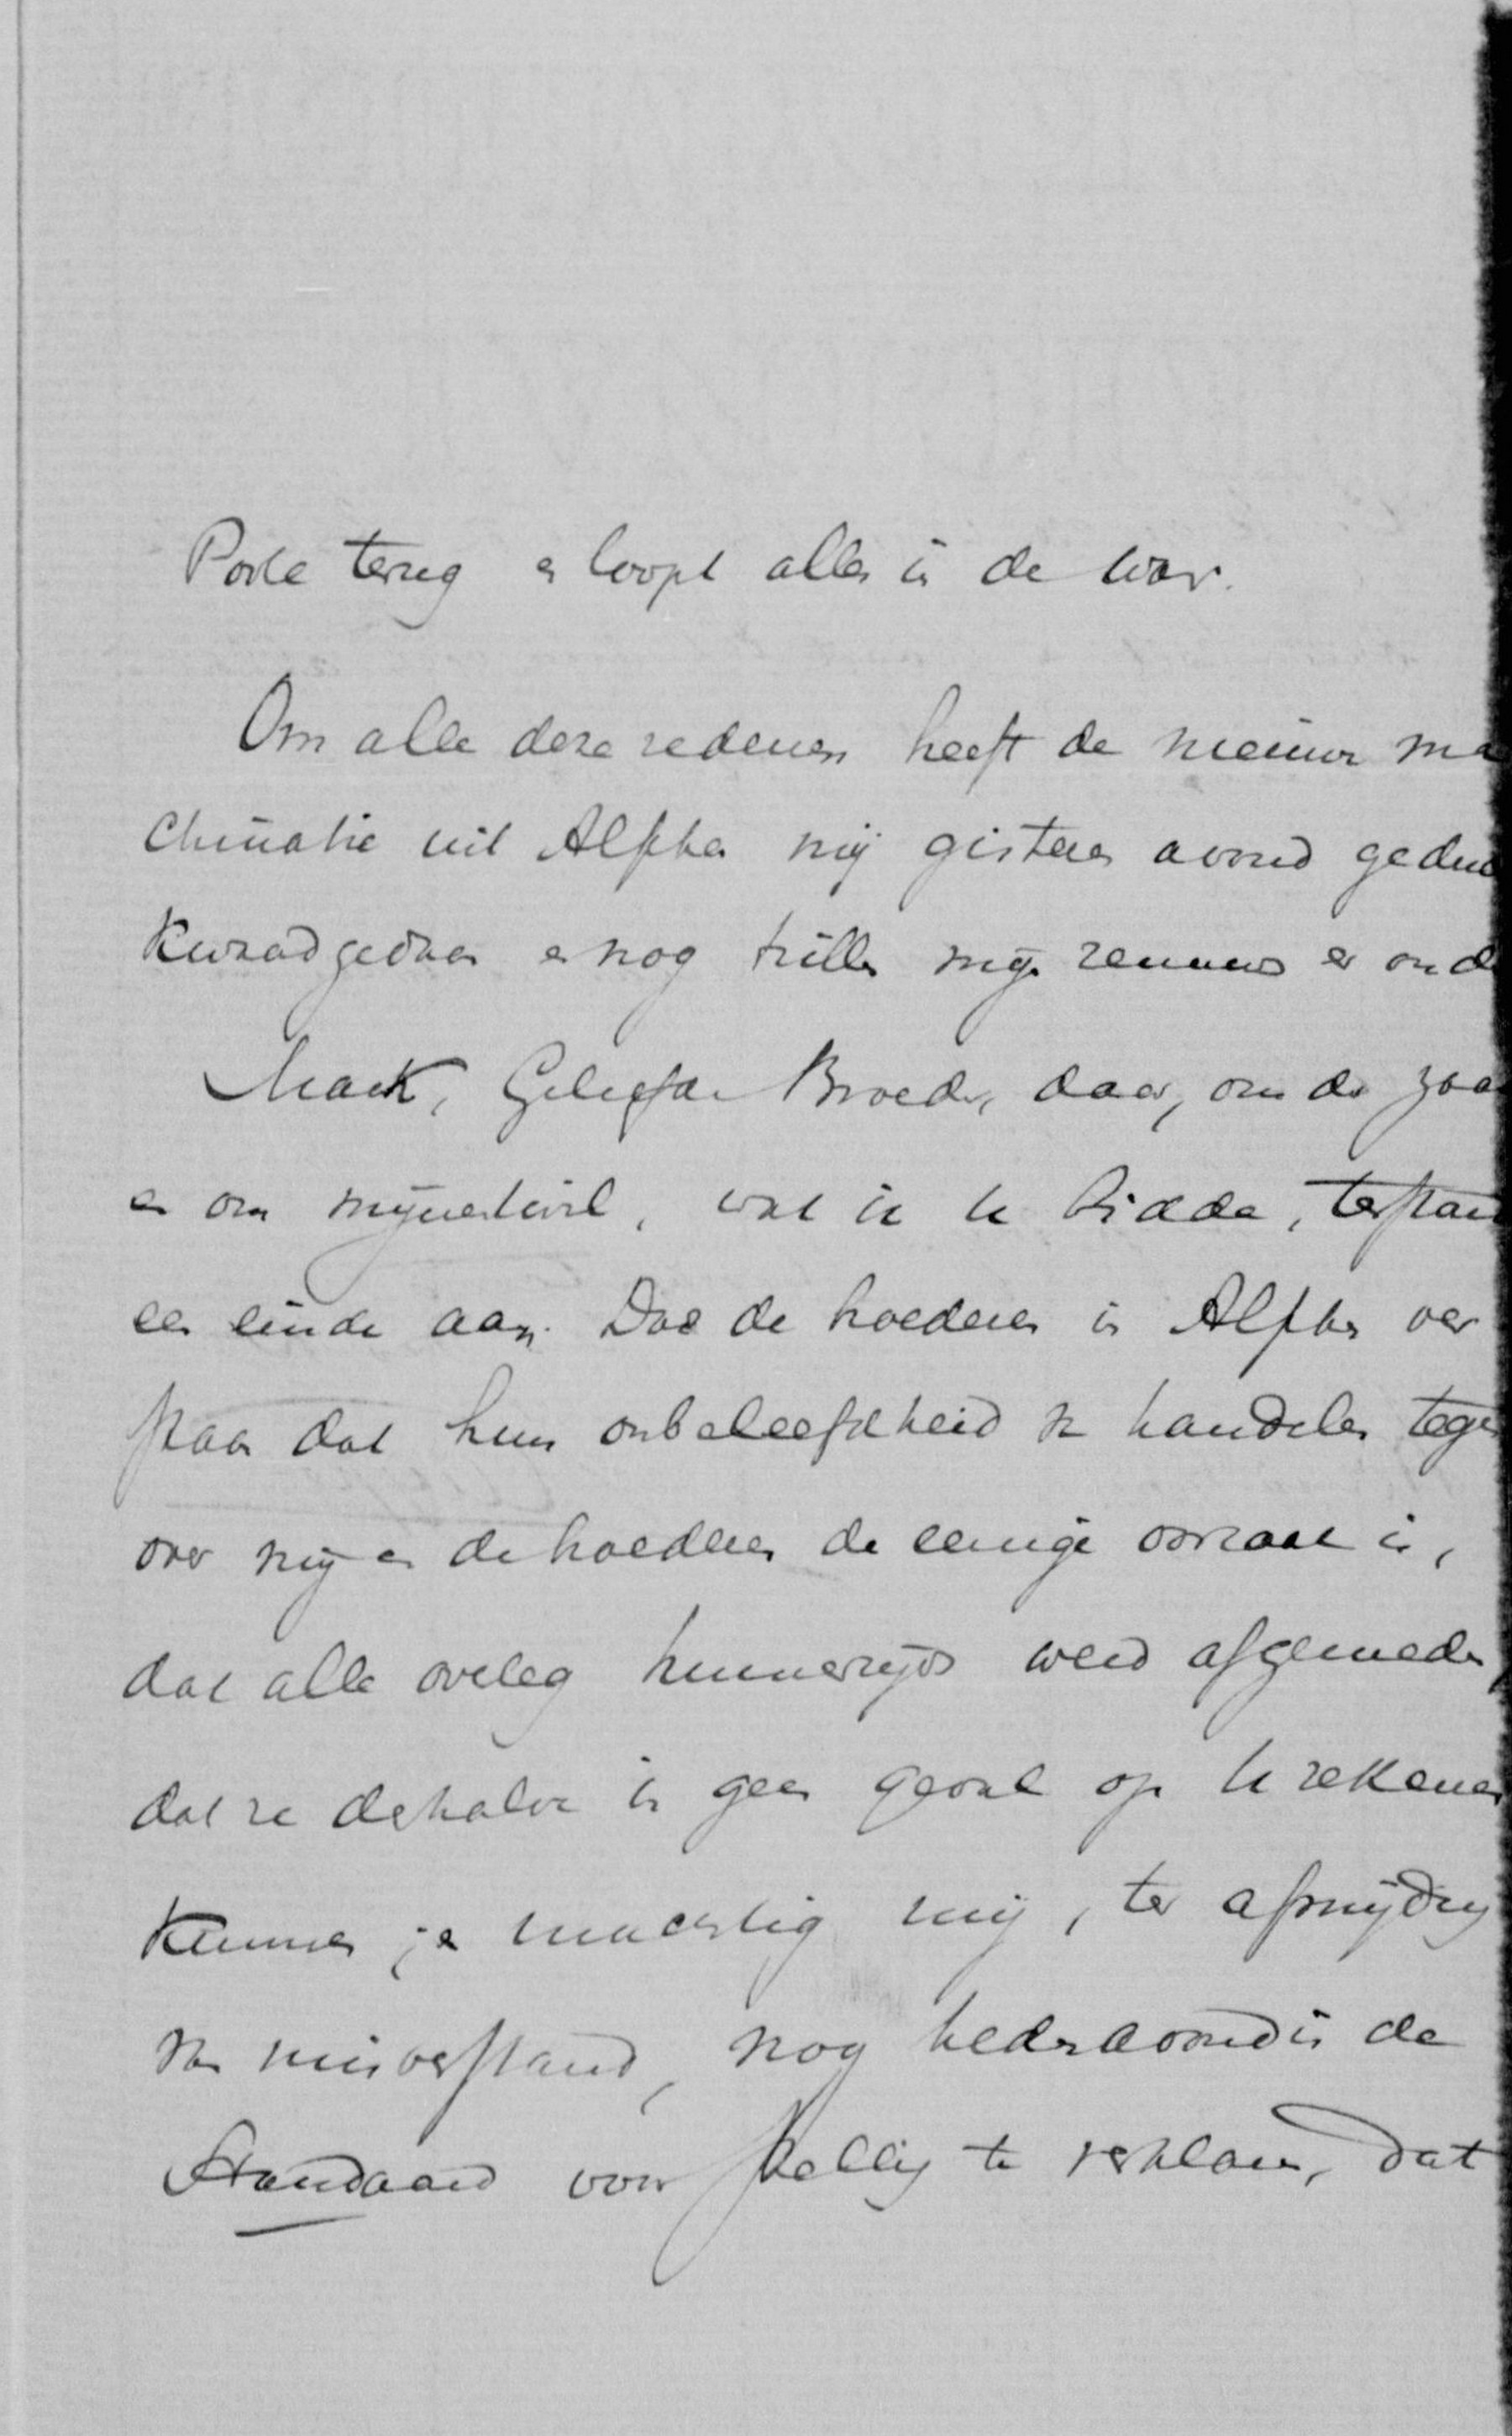 Porte terug en loopt alles in de war.
Om alle deze redenen heeft de nieuwe ma
chinatie uit Alpha mij gisteren avond gedu
kwaad gedaan en nog trillen mijn zenuwen er ond
Maak, Geliefde Broeder, daar, om de zaa
en om mijnentwil, wat ik U bidde, terstond
een einde aan. Dat de broederen in Alpha ver
staan dat hun onbeleefdheid van handelen tegen
over mij en de broederen de eenige oorzaak is,
dat alle overleg hunnerzijds werd afgemeden
dat ze derhalve in geen geval op U rekenen
kunnen, je machtig mij, ter afsnijding
van misverstand, nog heden avond in de
Standaard voor stellig te verklaren, dat